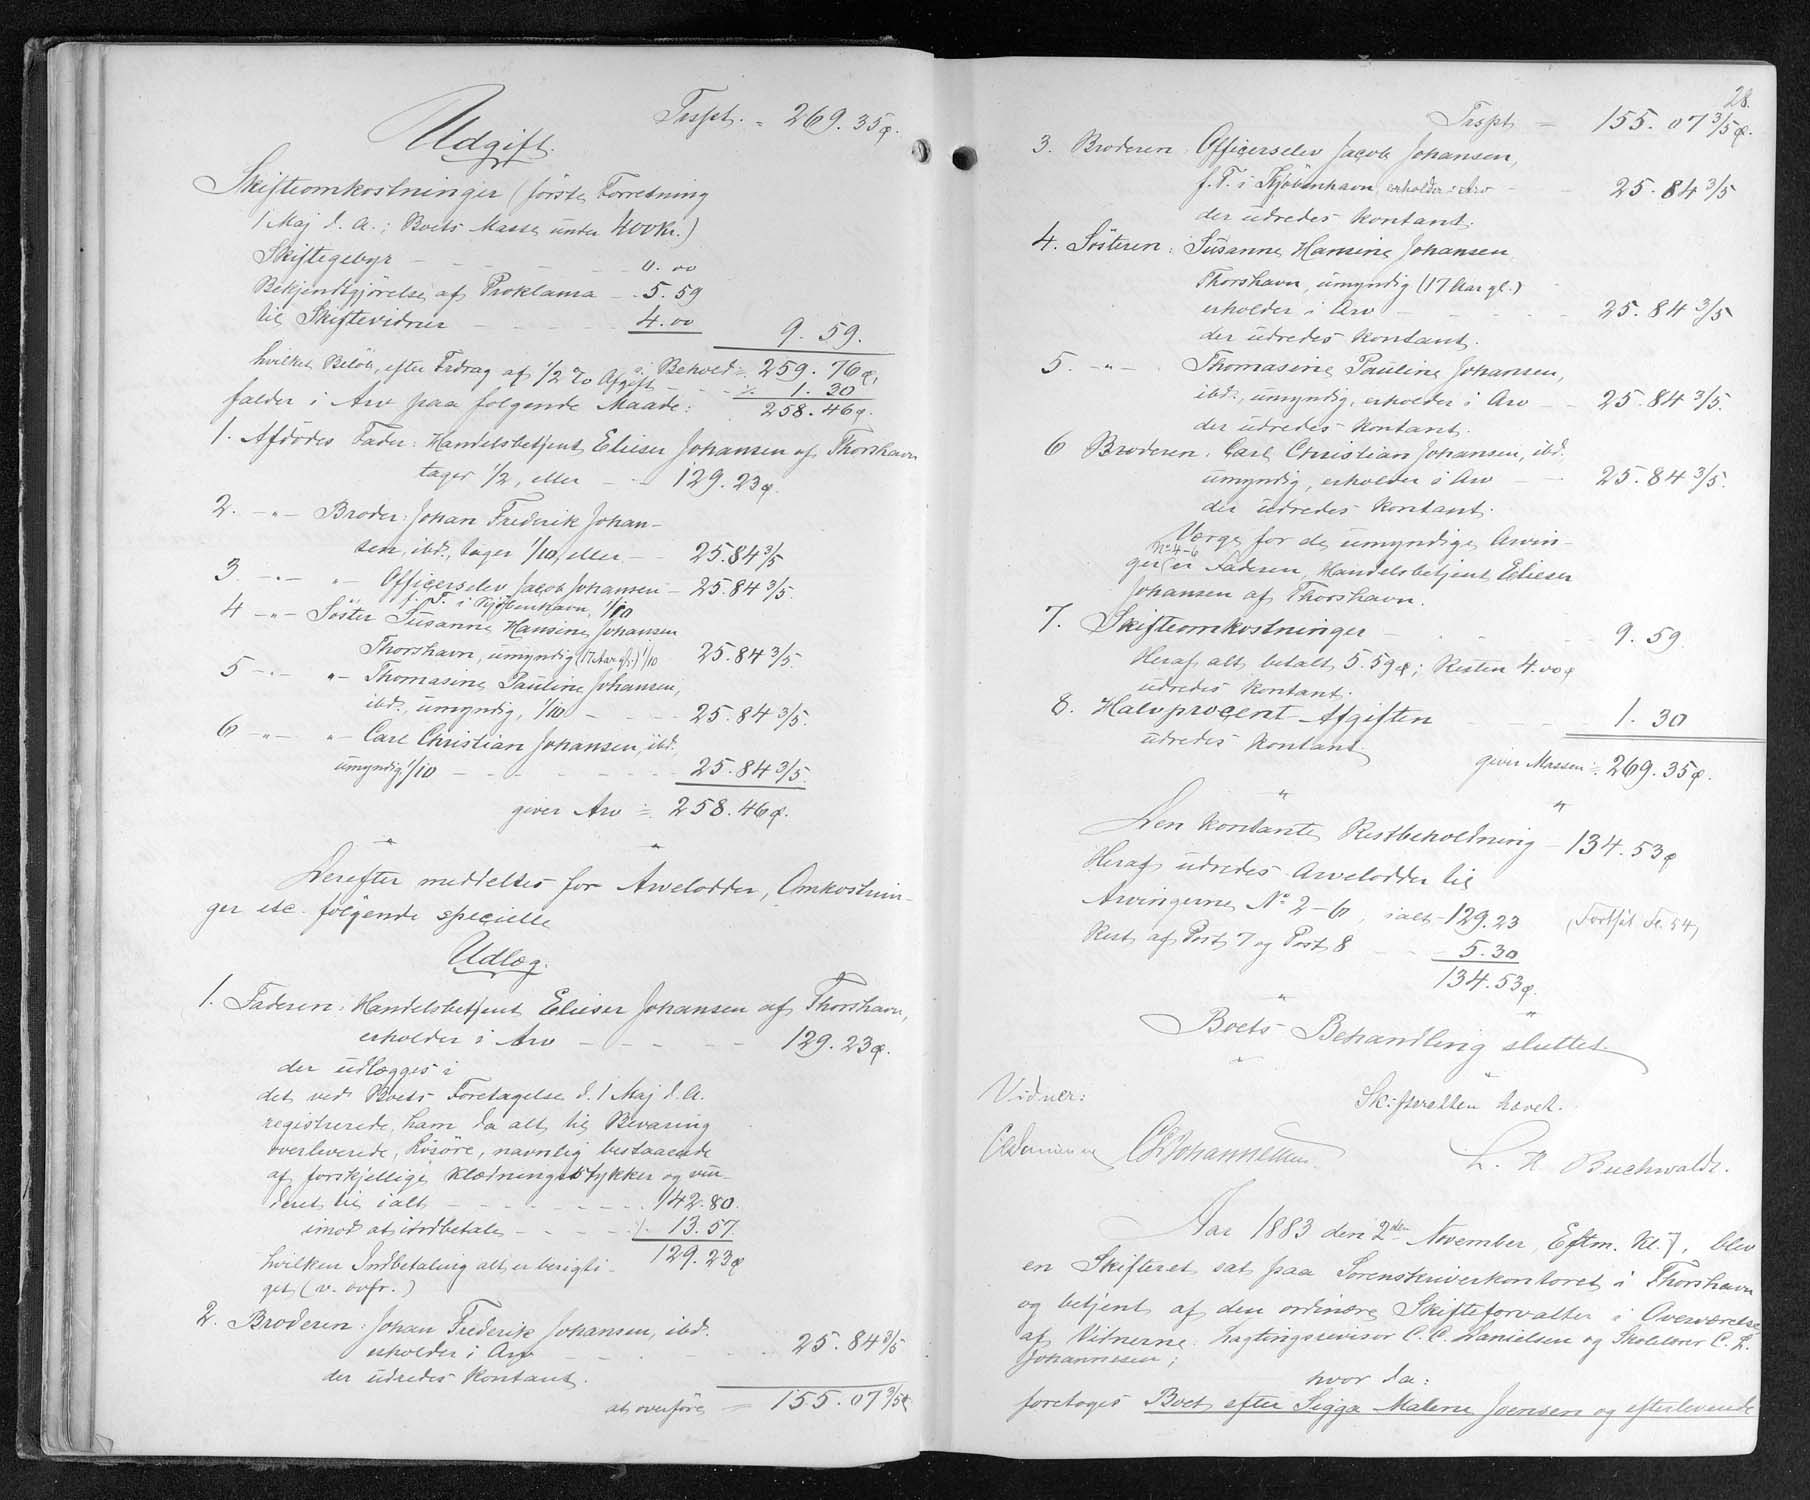 Trspt. = 269.35 ø.
Udgift.
Skifteomkostninger (første Forretning
1 Maj d. A.; Boets Masse under 400 Kr.)
Skiftegebyr – – – – 0.00
Bekjendtgjørelse af Proklama – 5.59
til Skiftevidner – – – 4.00 9.59.
Behold = 259.76 ø.
hvilket Beløb, efter Fradrag af 1/2 % Afgift – – ÷ 1.30
falder i Arv paa følgende Maade: 258.46 ø.
1. Afdødes Fader: Handelsbetjent Elieser Johansen af Thorshavn
tager 1/2, eller – – 129.23 ø.
2. –"– Broder: Johan Frederik Johan-
sen, ibd., tager 1/10, eller – – 25.84 3/5
3 –"– "– Officerselev Jacob Johansen – 25.84 3/5.
f. T. i Kjøbenhavn, 1/10
4 –"– Søster Susanne Hansine Johansen
Thorshavn, umyndig (17 Aar gl.) 1/10 25.84 3/5.
5 –"– "– Thomasine Pauline Johansen,
ibd., umyndig, 1/10 – – – 25.84 3/5.
6 –"– "– Carl Christian Johansen, ibd.,
umyndig 1/10 – – – – – 25.84 3/5.
giver Arv = 258.46 ø.
" "
Derefter meddeltes for Arvelodder, Omkostnin-
ger etc. følgende specielle
Udlæg.
1. Faderen: Handelsbetjent Elieser Johansen af Thorshavn,
erholder i Arv – – – – – 129.23 ø.
der udlægges i
det ved Boets Foretagelse d. 1 Maj d. A.
registrerede, ham da alt til Bevaring
overleverede, Løsøre, navnlig bestaaende
af forskjellige Klædningsstykker og vur-
deret til ialt – – – – – – 142.80.
imod at indbetale – – – – ÷ 13.57.
hvilken Indbetaling alt er berigti- 129.23 ø
get (v. ovfr.)
2. Broderen: Johan Frederik Johansen, ibd.
erholder i Arv – – – – 25.84 3/5
der udredes kontant.
at overføre = 155.07 3/5 ø
28.
Trspt = 155.07 3/5 ø.
3. Broderen: Officerselev Jacob Johansen,
f. T. i Kjøbenhavn, erholder i Arv – – 25.84 3/5
der udredes kontant.
4. Søsteren: Susanne Hansine Johansen
Thorshavn, umyndig (17 Aar gl.)
erholder i Arv – – – – – 25.84 3/5
der udredes kontant.
5. –"– Thomasine Pauline Johansen,
ibd., umyndig, erholder i Arv – – 25.84 3/5.
der udredes kontant.
6 Broderen: Carl Christian Johansen, ibd.,
umyndig, erholder i Arv – – 25.84 3/5.
der udredes kontant.
Værge for de umyndige Arvin-
No 4–6
ger er Faderen, Handelsbetjent Elieser
Johansen af Thorshavn.
7. Skifteomkostninger – – – – 9.59.
Heraf alt betalt 5.59 ø; Resten 4.00 ø
udredes kontant.
8. Halvprocent-Afgiften – – – 1.30
udredes kontant.
giver Massen = 269.35 ø.
" "
Den kontante Restbeholdning – 134.53 ø
Heraf udredes Arvelodder til
Arvingerne No 2–6, ialt – 129.23 (Fortsat Fo. 54)
Rest af Post 7 og Post 8 – – 5.30
134.53 ø.
" "
Boets Behandling sluttet
" "
Skifteretten hævet.
Vidner:
CCDanielsen CLJohannessen L. H. Buchwaldt.
Aar 1883 den 2den November, Eftm. Kl. 7, blev
en Skifteret sat paa Sorenskriverkontoret i Thorshavn
og betjent af den ordinære Skifteforvalter i Overværelse
af Vitnerne Lagtingsrevisor C. C. Danielsen og Skolelærer C. L.
Johannessen;
hvor da:
foretoges Boet efter Sigga Malene Joensen og efterlevende